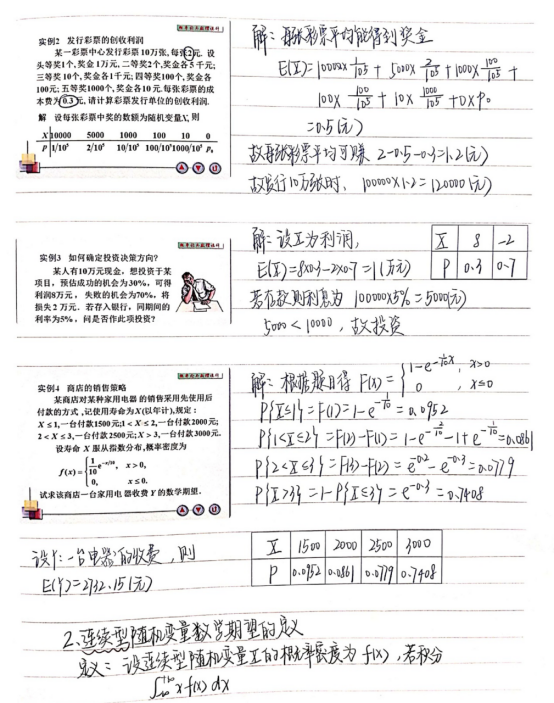 概率论与数理统计
实例2 发行彩票的创收利润
某一彩票中心发行彩票10万张,每张2元.设
头等奖1个,奖金1万元,二等奖2个,奖金各5千元;
三等奖10个,奖金各1千元;四等奖100个,奖金各
100元;五等奖1000个,奖金各10元.每张彩票的成
本费为0.3元,请计算彩票发行单位的创收利润.
解 设每张彩票中奖的数额为随机变量X,则
X 10000 5000 1000 100 10 0
P 1/10⁵ 2/10⁵ 10/10⁵ 100/10⁵ 1000/10⁵ p₀
解:每张彩票平均能得到奖金
E(X)=10000×1/10⁵+5000×2/10⁵+1000×10/10⁵+
100×100/10⁵+10×1000/10⁵+0×P₀
=0.5(元)
故每张彩票平均可赚 2-0.5-0.3=1.2(元)
故发行10万张时, 100000×1.2=120000(元)
概率论与数理统计
实例3 如何确定投资决策方向?
某人有10万元现金,想投资于某
项目,预估成功的机会为30%,可得
利润8万元,失败的机会为70%,将
损失2万元.若存入银行,同期间的
利率为5%,问是否作此项投资?
解:设X为利润,
E(X)=8×0.3-2×0.7=1(万元)
X 8 -2
P 0.3 0.7
若存款则利息为 100000×5%=5000(元)
5000<10000,故投资
概率论与数理统计
实例4 商店的销售策略
某商店对某种家用电器的销售采用先使用后
付款的方式,记使用寿命为X(以年计),规定:
X≤1,一台付款1500元;1<X≤2,一台付款2000元;
2<X≤3,一台付款2500元;X>3,一台付款3000元.
设寿命X服从指数分布,概率密度为
f(x)={1/10 e^(-x/10), x>0,
0, x≤0.
试求该商店一台家用电器收费Y的数学期望.
解:根据题目得 F(x)={1-e^(-1/10 x), x>0
0, x≤0
P{X≤1}=F(1)=1-e^(-1/10)=0.0952
P{1<X≤2}=F(2)-F(1)=1-e^(-2/10)-1+e^(-1/10)=0.0861
P{2<X≤3}=F(3)-F(2)=e^(-0.2)-e^(-0.3)=0.0779
P{X>3}=1-P{X≤3}=e^(-0.3)=0.7408
设Y:一台电器的收费,则
E(Y)=2732.15(元)
X 1500 2000 2500 3000
P 0.0952 0.0861 0.0779 0.7408
2.连续型随机变量数学期望的定义
定义:设连续型随机变量X的概率密度为f(x),若积分
∫₋∞^+∞ x f(x) dx